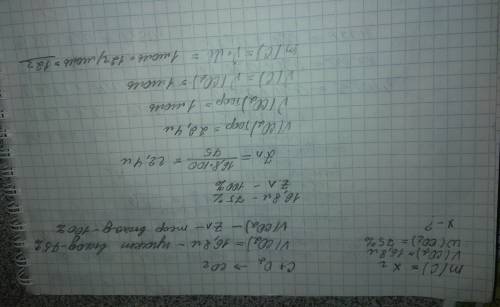 m(C) = x г
V(CO₂) = 16,8 л
W(CO₂) = 75%
x - ?
C + O₂ → CO₂
V(CO₂) = 16,8 л - практ выход - 75%
V(CO₂) - Z л - теор выход - 100%
16,8 л - 75%
Z л - 100%
Z л = 16,8·100 / 75 = 22,4 л
V(CO₂) теор = 22,4 л
ν(CO₂) теор = 1 моль
ν(C) = ν(CO₂) = 1 моль
m(C) = ν·M = 1 моль · 12 г/моль = 12 г